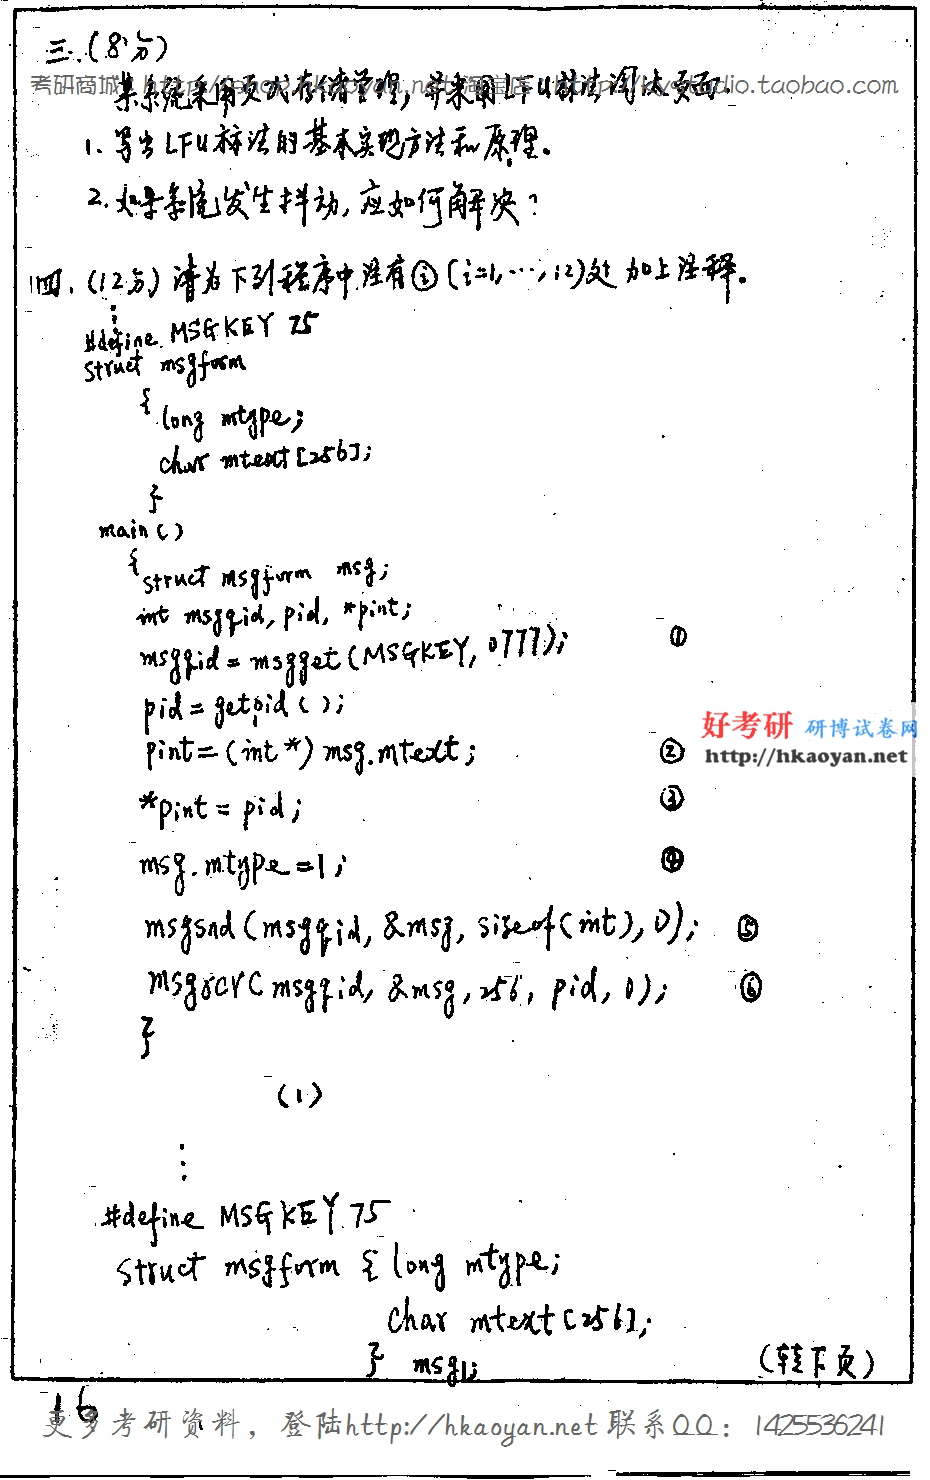 三.(8分)
某系统采用页式存储管理,并采用LFU算法淘汰页面
1. 写出LFU算法的基本实现方法和原理。
2. 如果系统发生抖动,应如何解决?
四.(12分)请为下列程序中注有ⓘ(i=1,…,12)处加上注释。
⋮
#define MSGKEY 75
struct msgform
{ long mtype;
char mtext[256];
}
main()
{ struct msgform msg;
int msgqid, pid, *pint;
msgqid=msgget(MSGKEY, 0777); ①
pid=getpid();
pint=(int*) msg.mtext; ②
*pint=pid; ③
msg.mtype=1; ④
msgsnd(msgqid, &msg, sizeof(int), 0); ⑤
msgrcv(msgqid, &msg, 256, pid, 0); ⑥
}
(1)
⋮
#define MSGKEY 75
struct msgform { long mtype;
char mtext[256];
} msg1;
(转下页)
16
好考研 研博试卷网
http://hkaoyan.net
更多考研资料, 登陆http://hkaoyan.net 联系QQ: 1425536241